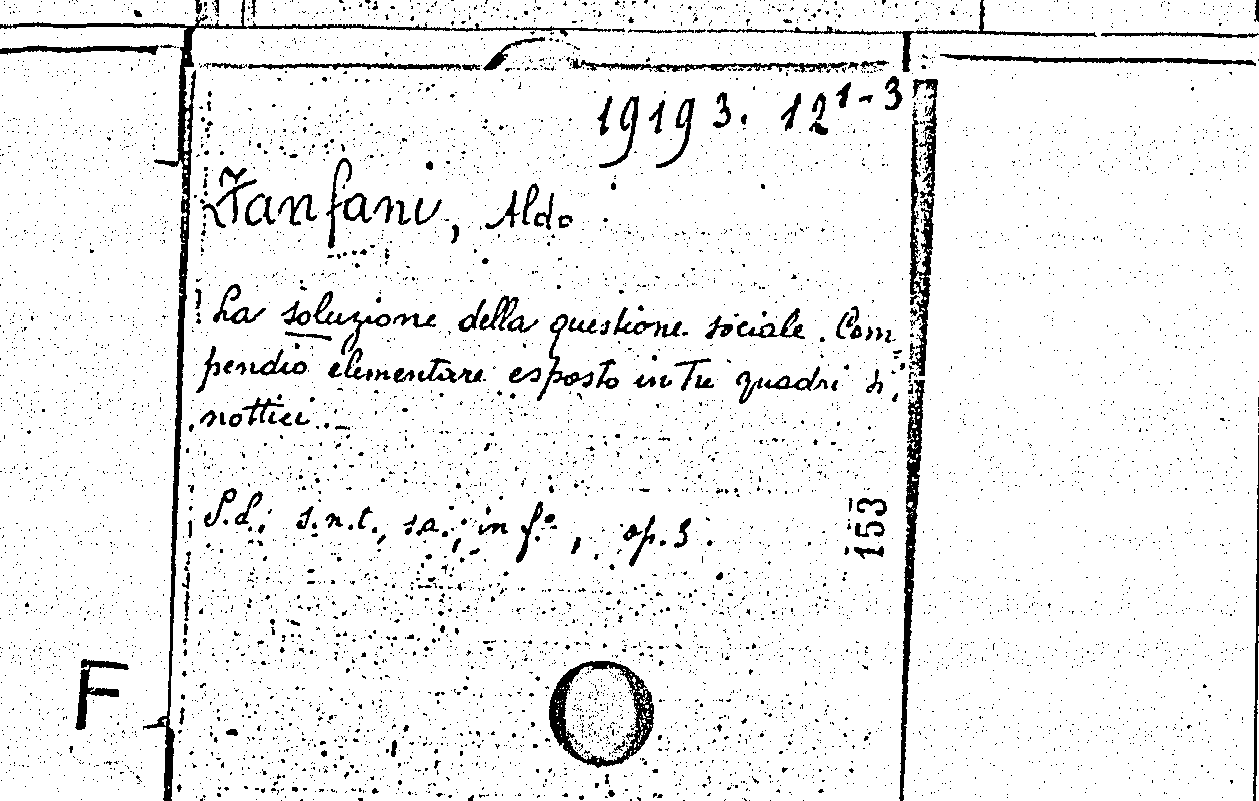 19193. 12 1-3
Fanfani, Aldo
La soluzione della questione sociale. Com=
pendio elementare esposto in tre quadri si=
nottici..
S.l., s.n.t., s.a., in f.º, op. 3.
153
F